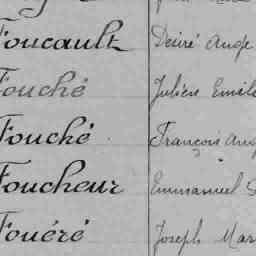 Foucault Désiré Ange
Fouché Julien Emile
Fouché François Aug
Foucheur Emmanuel
Fouéré Joseph Mar